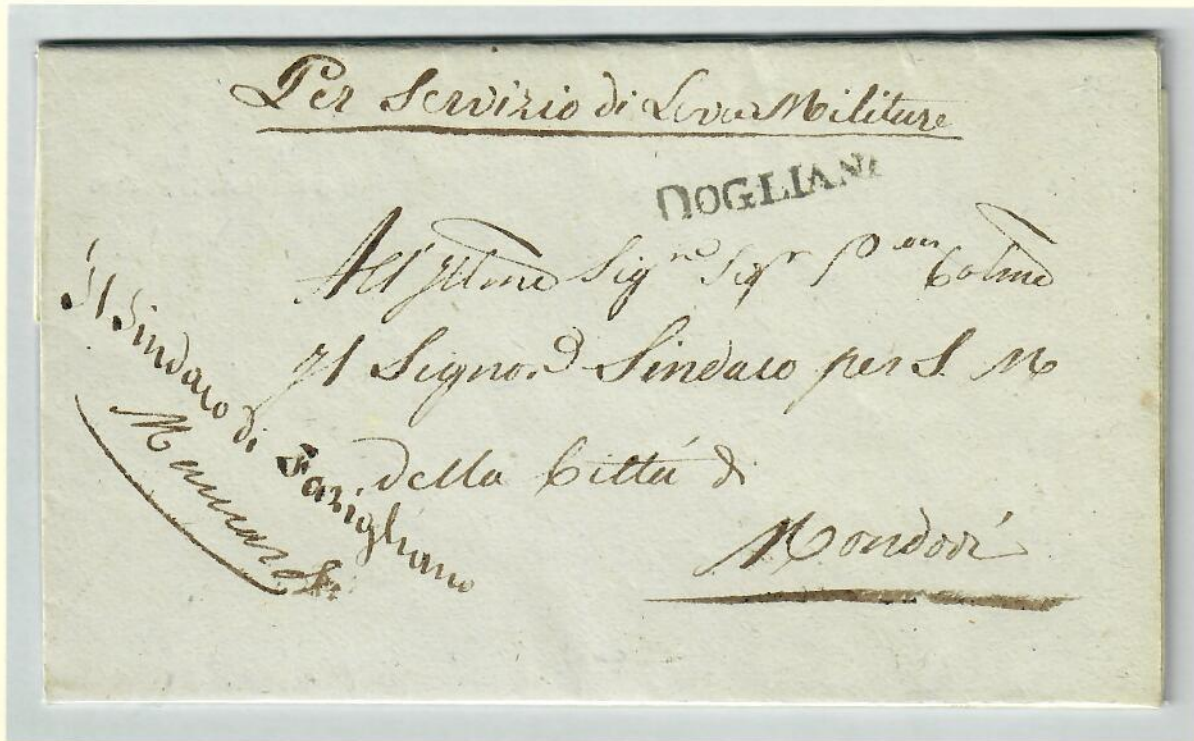 Per Servizio di Leva Militare
DOGLIANI
All'Illmo Sig.re Sig.r P.on Colmo
Il Signor Sindaco per S. M
della Città di
Mondovì
Il Sindaco di Farigliano